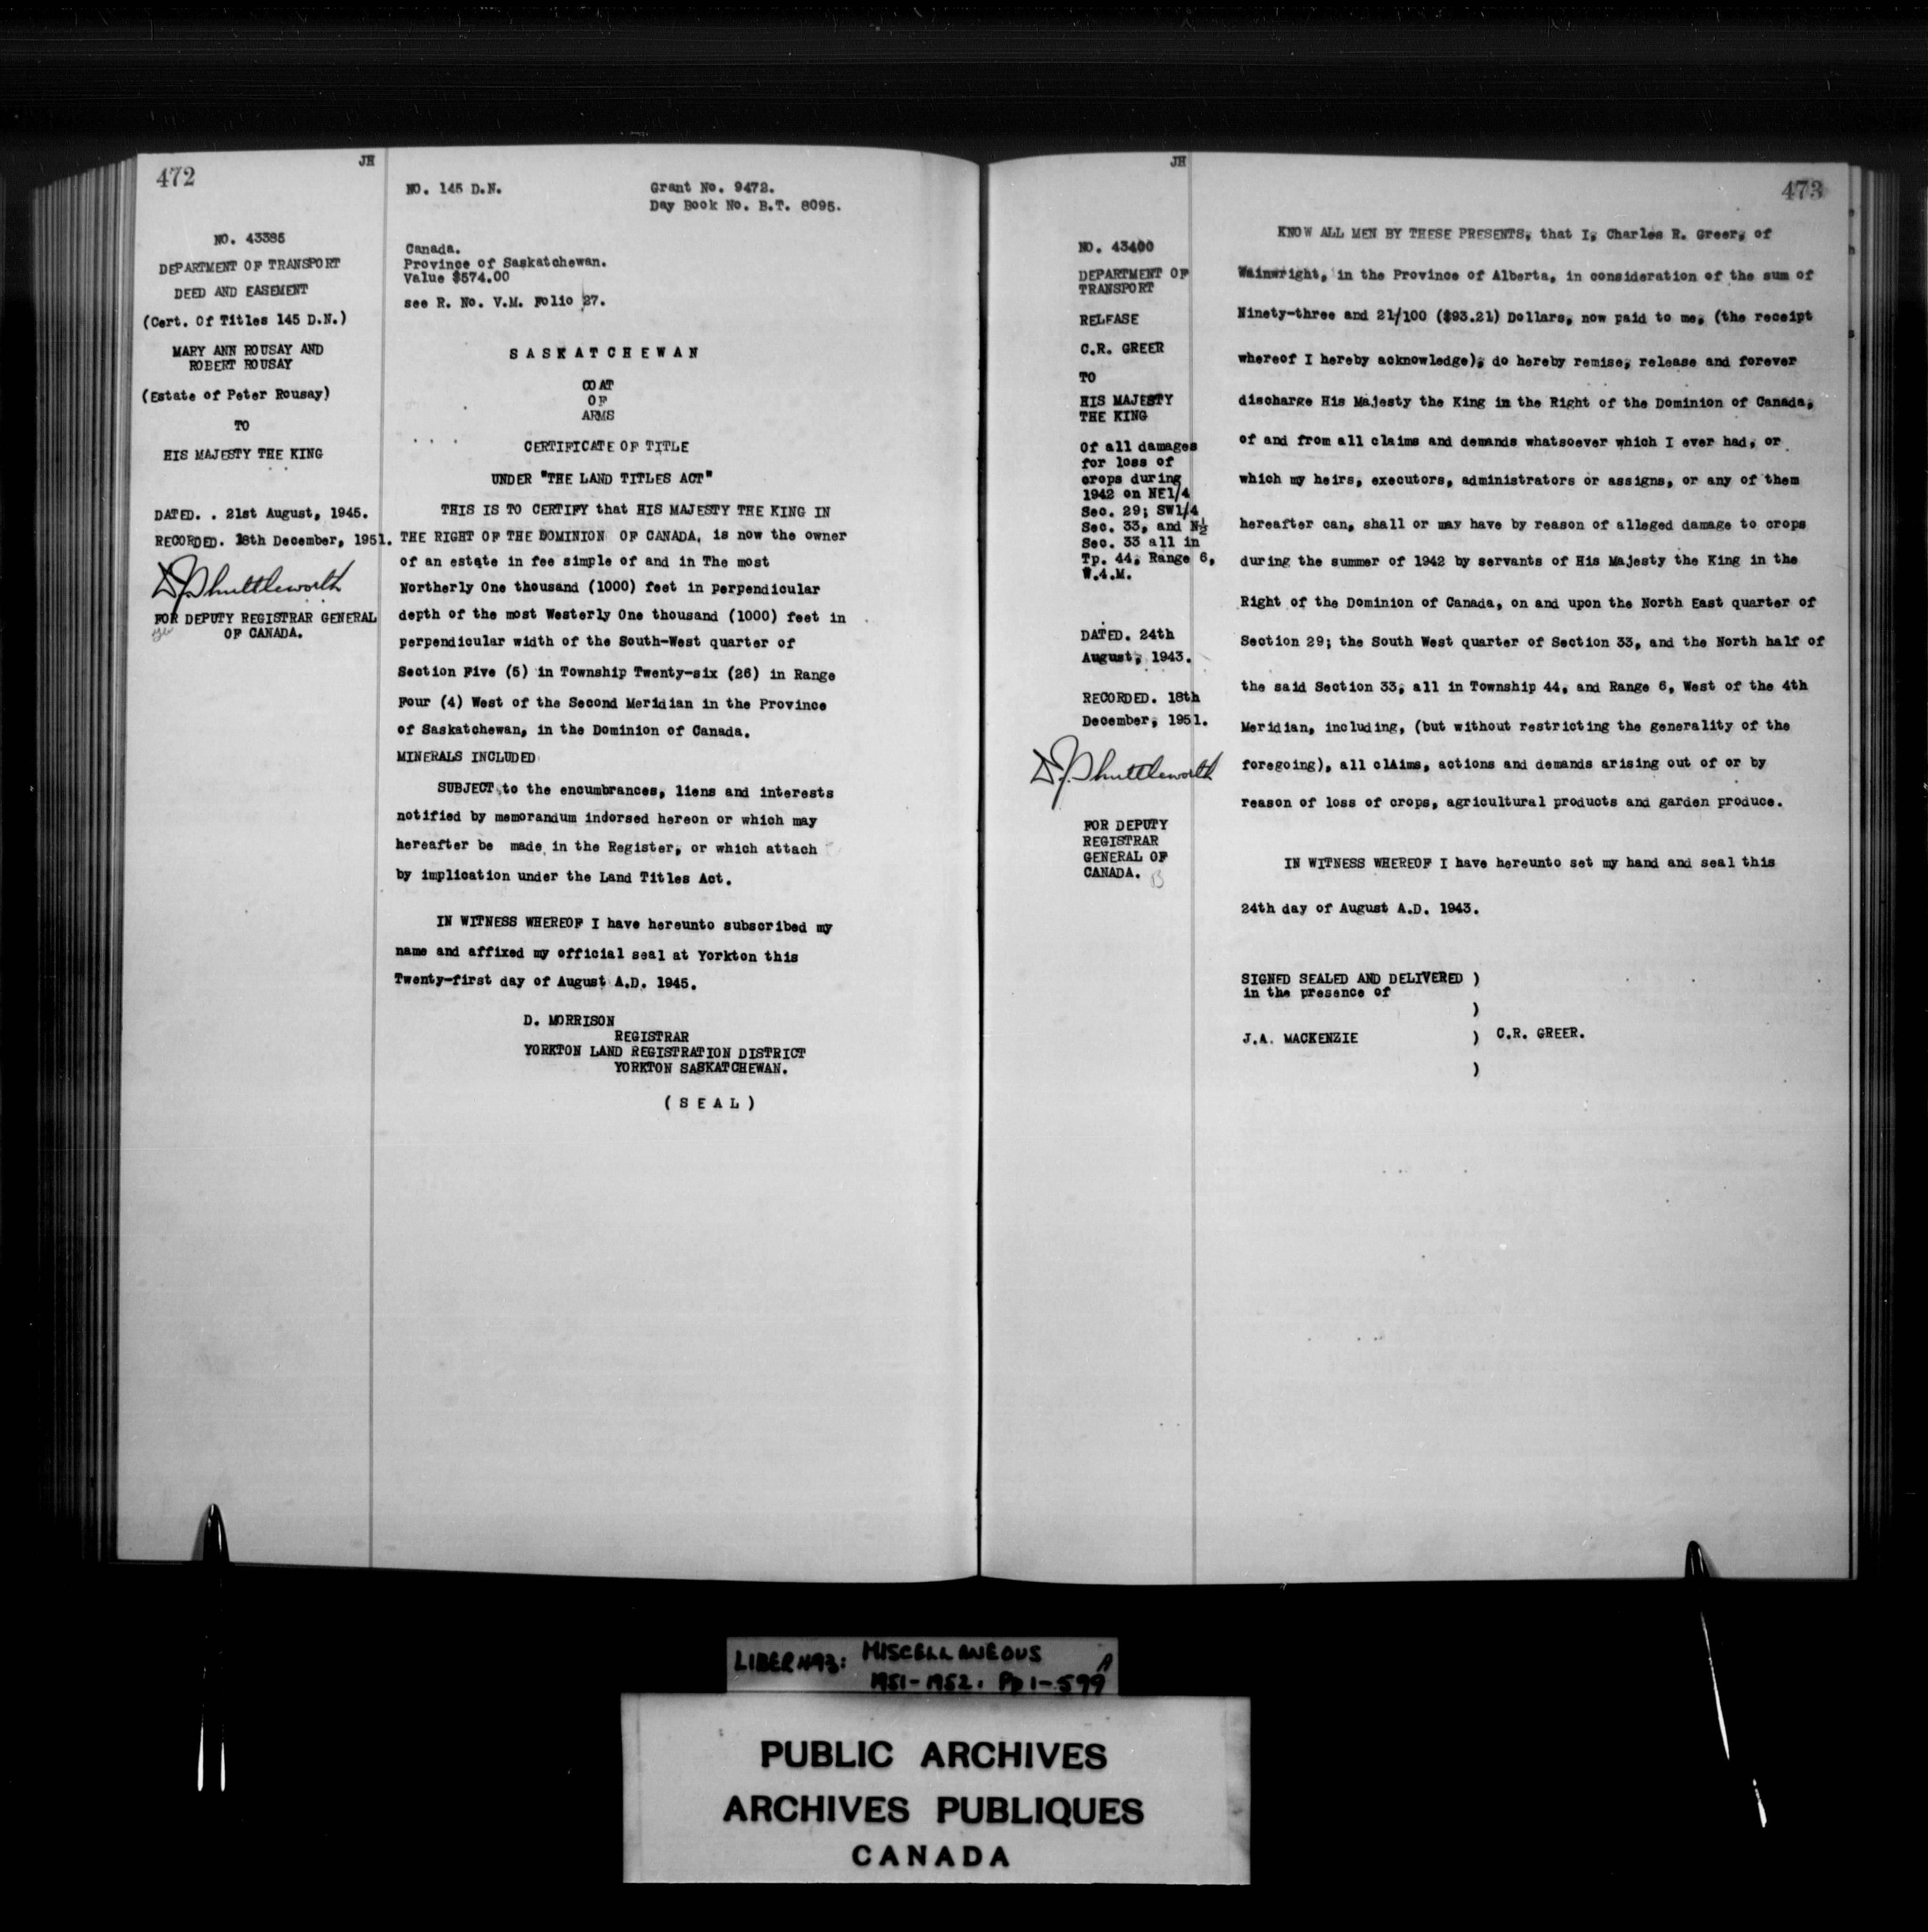 472
JH
NO. 43385
DEPARTMENT OF TRANSPORT
DEED AND EASEMENT
(Cert. Of Titles 145 D.N.)
MARY ANN ROUSAY AND
ROBERT ROUSAY
(Estate of Peter Rousay)
TO
HIS MAJESTY THE KING
DATED. . 21st August, 1945.
RECORDED. 18th December, 1951.
D.J. Shuttleworth
FOR DEPUTY REGISTRAR GENERAL
OF CANADA.
NO. 145 D.N.
Grant No. 9472.
Day Book No. B.T. 8095.
Canada.
Province of Saskatchewan.
Value $574.00
see R. No. V.M. Folio 27.
S A S K A T C H E W A N
COAT
OF
ARMS
CERTIFICATE OF TITLE
UNDER "THE LAND TITLES ACT"
THIS IS TO CERTIFY that HIS MAJESTY THE KING IN
THE RIGHT OF THE DOMINION OF CANADA, is now the owner
of an estate in fee simple of and in The most
Northerly One thousand (1000) feet in perpendicular
depth of the most Westerly One thousand (1000) feet in
perpendicular width of the South-West quarter of
Section Five (5) in Township Twenty-six (26) in Range
Four (4) West of the Second Meridian in the Province
of Saskatchewan, in the Dominion of Canada.
MINERALS INCLUDED
SUBJECT to the encumbrances, liens and interests
notified by memorandum indorsed hereon or which may
hereafter be made in the Register, or which attach
by implication under the Land Titles Act.
IN WITNESS WHEREOF I have hereunto subscribed my
name and affixed my official seal at Yorkton this
Twenty-first day of August A.D. 1945.
D. MORRISON
REGISTRAR
YORKTON LAND REGISTRATION DISTRICT
YORKTON SASKATCHEWAN.
( S E A L )
JH
473
NO. 43400
DEPARTMENT OF
TRANSPORT
RELEASE
C.R. GREER
TO
HIS MAJESTY
THE KING
Of all damages
for loss of
crops during
1942 on NE1/4
Sec. 29; SW1/4
Sec. 33, and N½
Sec. 33 all in
Tp. 44, Range 6,
W.4.M.
DATED. 24th
August, 1943.
RECORDED. 18th
December, 1951.
D.J. Shuttleworth
FOR DEPUTY
REGISTRAR
GENERAL OF
CANADA.
KNOW ALL MEN BY THESE PRESENTS, that I, Charles R. Greer, of
Wainwright, in the Province of Alberta, in consideration of the sum of
Ninety-three and 21/100 ($93.21) Dollars, now paid to me, (the receipt
whereof I hereby acknowledge), do hereby remise, release and forever
discharge His Majesty the King in the Right of the Dominion of Canada,
of and from all claims and demands whatsoever which I ever had, or
which my heirs, executors, administrators or assigns, or any of them
hereafter can, shall or may have by reason of alleged damage to crops
during the summer of 1942 by servants of His Majesty the King in the
Right of the Dominion of Canada, on and upon the North East quarter of
Section 29; the South West quarter of Section 33, and the North half of
the said Section 33, all in Township 44, and Range 6, West of the 4th
Meridian, including, (but without restricting the generality of the
foregoing), all clAims, actions and demands arising out of or by
reason of loss of crops, agricultural products and garden produce.
IN WITNESS WHEREOF I have hereunto set my hand and seal this
24th day of August A.D. 1943.
SIGNED SEALED AND DELIVERED )
in the presence of
)
J.A. MACKENZIE ) C.R. GREER.
)
LIBER 493: MISCELLANEOUS A
1951-1952. Pp 1-599
PUBLIC ARCHIVES
ARCHIVES PUBLIQUES
CANADA